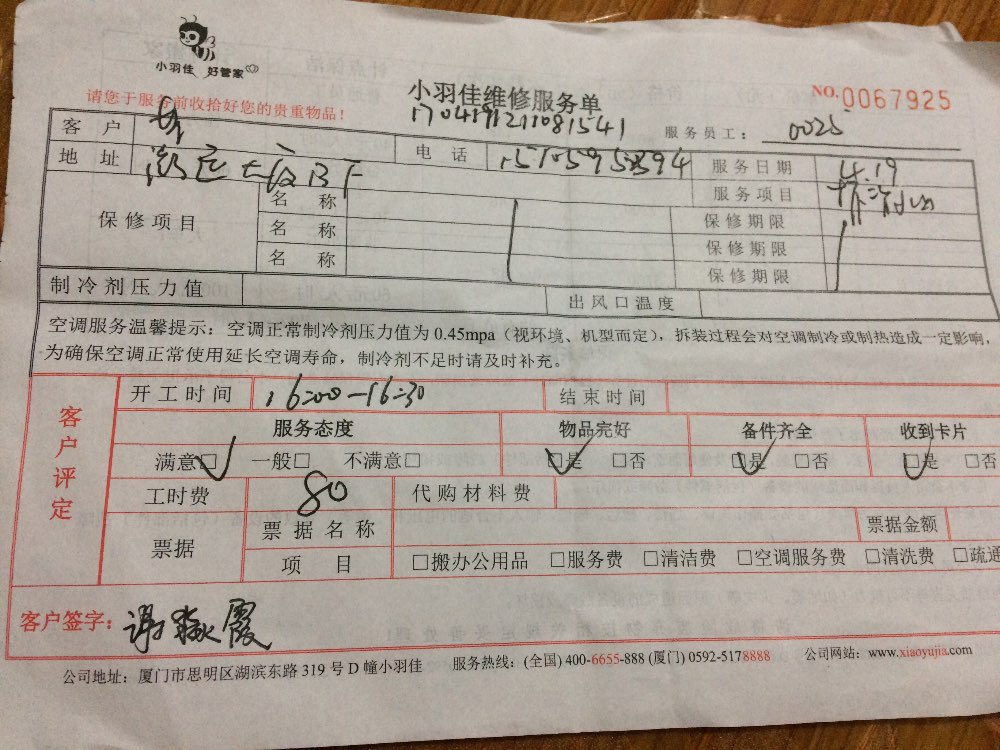 小羽佳 好管家
请您于服务前收拾好您的贵重物品!
小羽佳维修服务单
NO.0067925
170419121081541
服务员工: 0025
客 户
电 话
服务日期 4.19
地 址
服务项目
保修项目
名 称 保修期限
名 称 保修期限
名 称 保修期限
制冷剂压力值 出风口温度
空调服务温馨提示:空调正常制冷剂压力值为 0.45mpa(视环境、机型而定),拆装过程会对空调制冷或制热造成一定影响,
为确保空调正常使用延长空调寿命,制冷剂不足时请及时补充。
客户评定
开工时间 16:00-16:30 结束时间
服务态度 物品完好 备件齐全 收到卡片
满意□ 一般□ 不满意□ □是 □否 □是 □否 □是 □否
工时费 80 代购材料费
票据 票 据 名 称 票据金额
项 目 □搬办公用品 □服务费 □清洁费 □空调服务费 □清洗费 □疏通
客户签字: 谢淼霞
公司地址:厦门市思明区湖滨东路 319 号 D 幢小羽佳 服务热线:(全国) 400-6655-888 (厦门) 0592-5178888 公司网站:www.xiaoyujia.com